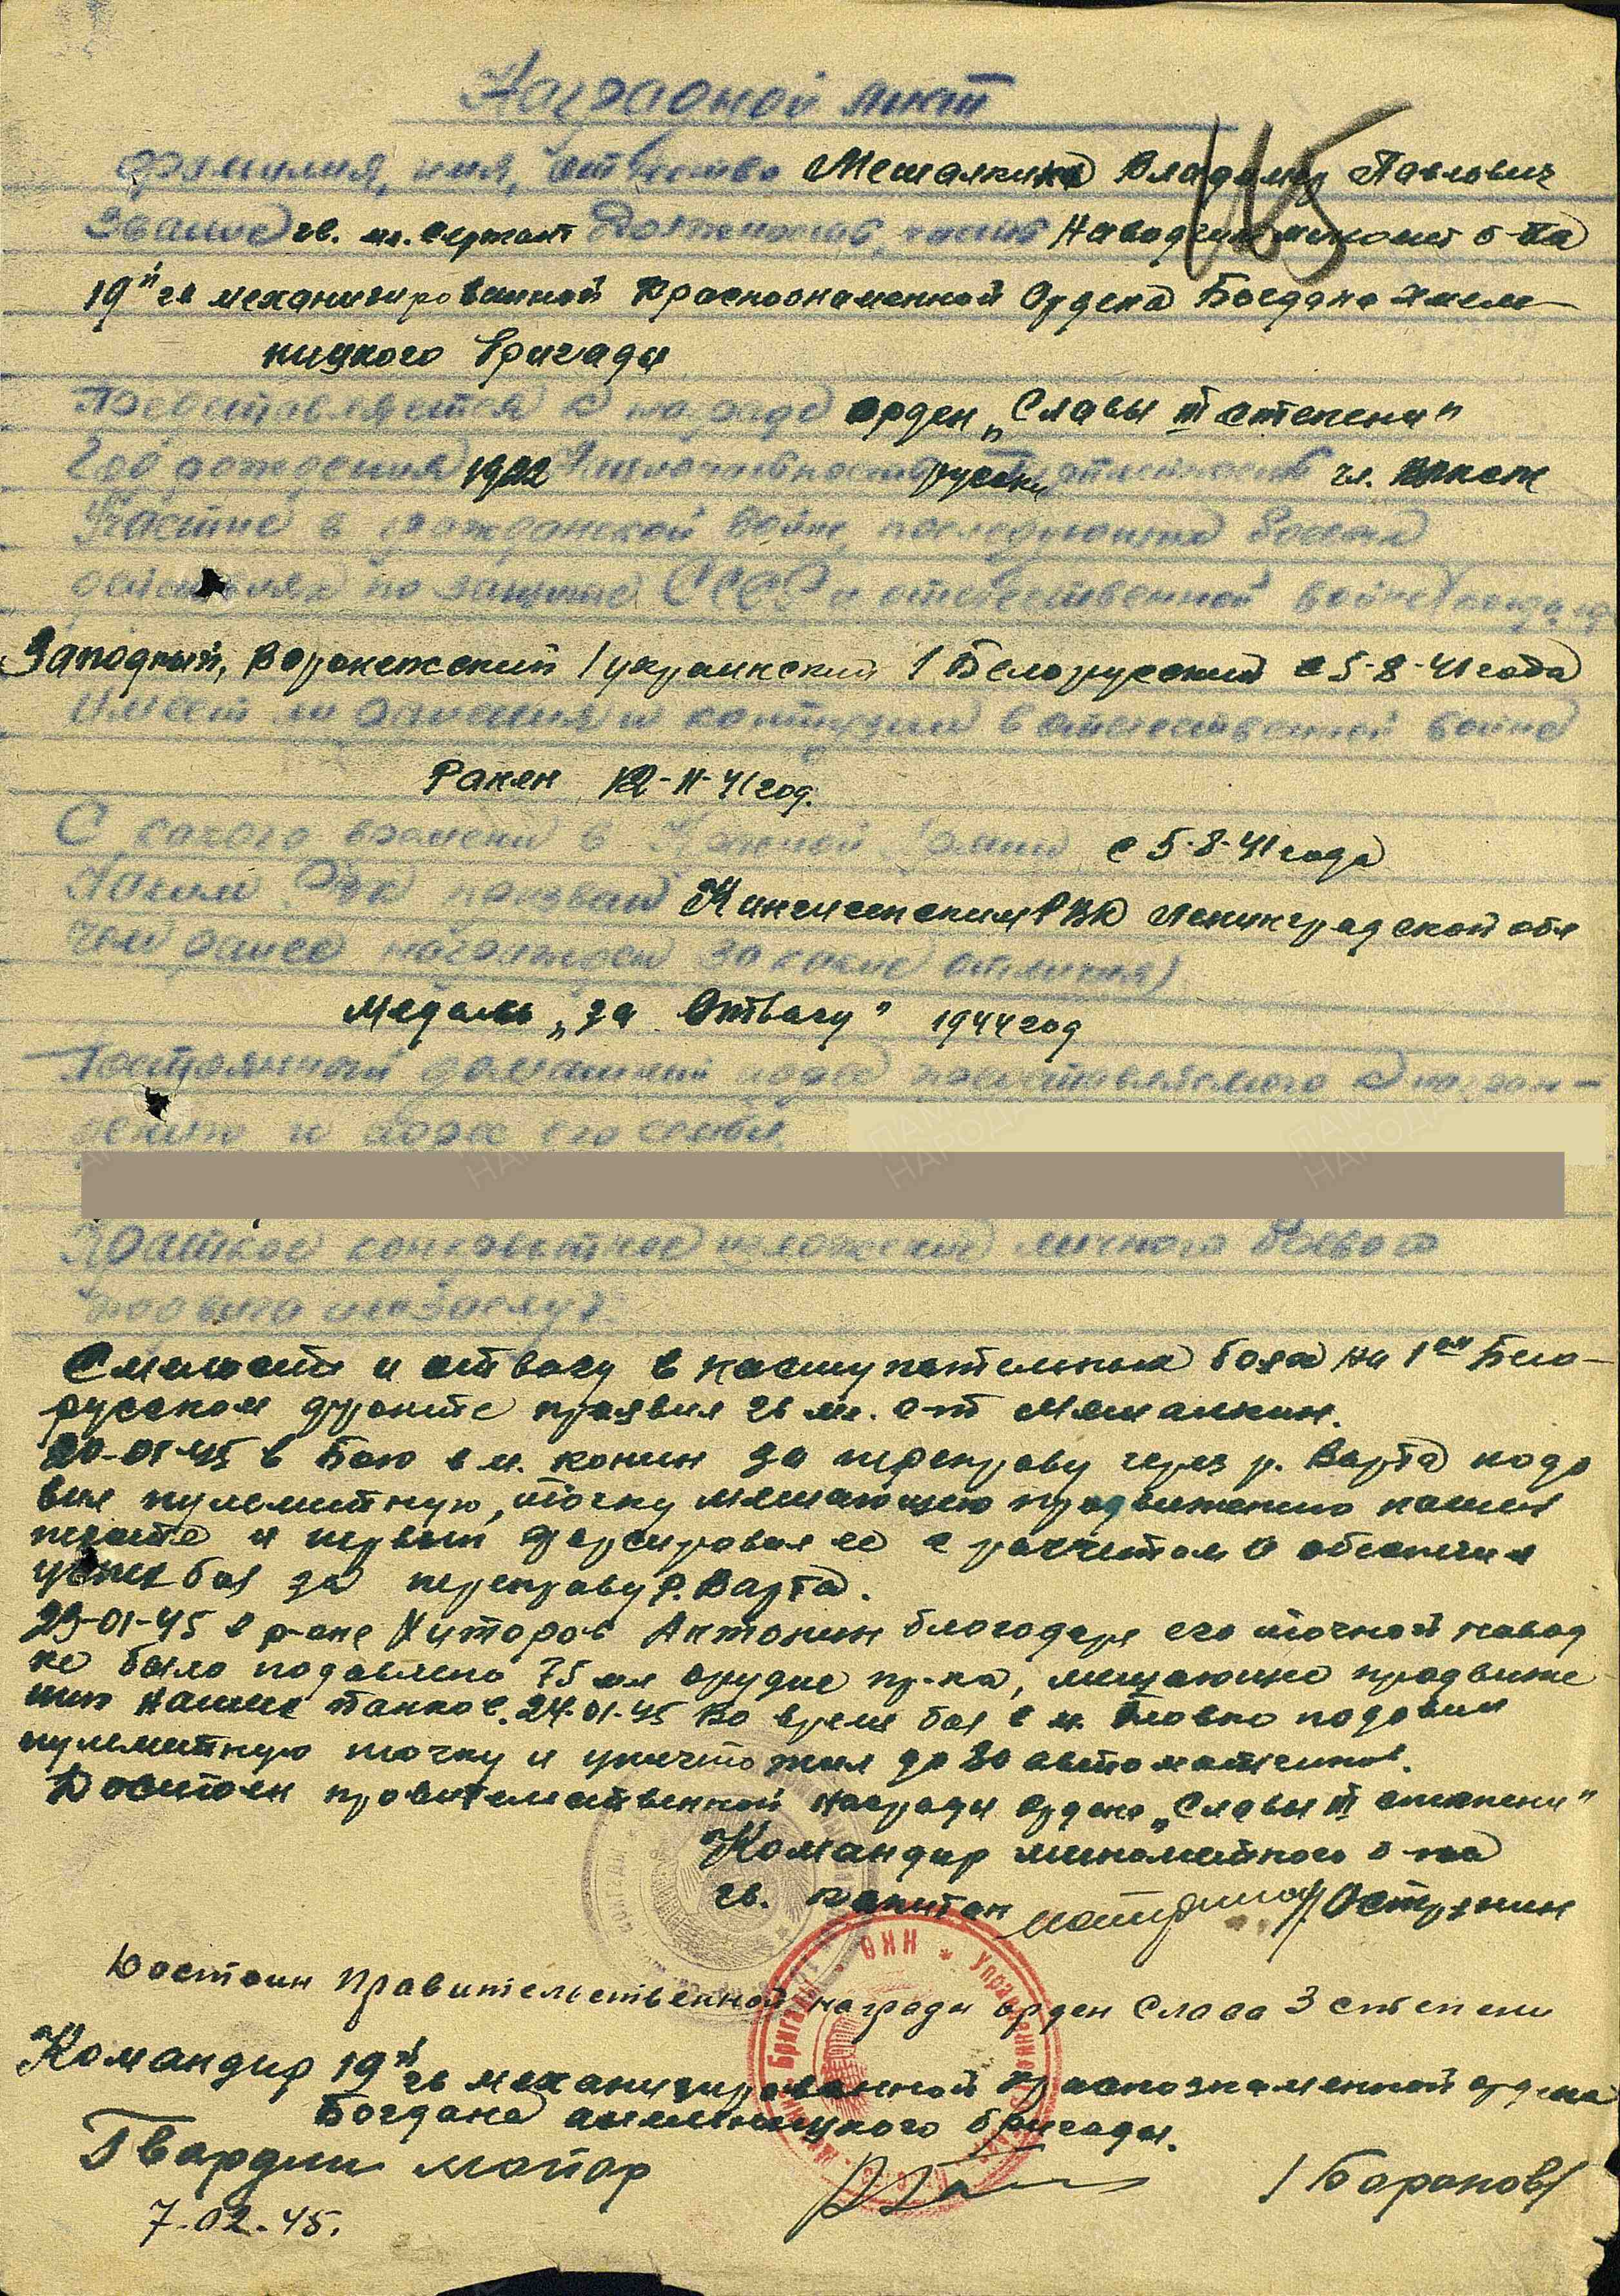 Наградной лист
фамилия, имя, отчество Мешалкина Владимир Павлович
115
Звание гв. мл. сержант Должность, часть Наводчик миномет б-на
19й гв механизированной Краснознаменной Ордена Богдана Хмель-
ницкого бригады
Представляется к награде орден „Славы III степени"
Год рождения 1922 Национальность русский партийность чл. ВЛКСМ
Участие в гражданской войне, последующих боевых
действиях по защите СССР и отечественной войне
Западный, Воронежский 1 украинский 1 Белорусский с 5-8-41 года
Имеет ли ранения и контузии в отечественной войне
Ранен 12-11-41 год.
С какого времени в Красной Армии с 5-8-41 года
Каким РВК призван Кингисепским РВК Ленинградской обл
Чем ранее награжден за какие отличия)
Медаль „за Отвагу" 1944 год
Постоянный домашний адрес представляемого к награж-
дению и адрес его семьи
Краткое конкретное изложение личного боевого
подвига или заслуг.
Смелость и отвагу в наступательных боях на 1ом Бело-
русском фронте проявил гв мл. с-т Мяшалкин.
20-01-45 в бою в м. конин за переправу через р. Варта пода
вил пулеметную точку мешающую продвижению нашей
пехоте и первым форсировал ее с расчетом и обеспечил
успех боя за переправу р. Варта.
23-01-45 в р-оне Хуторов Антонин благодаря его точной навод
ке было подавлено 75 мм орудие пр-ка, мешающие продвиже
нию наших танков. 24-01-45 во время боя в м. подавил
пулеметную точку и уничтожил до 30 автоматчиков.
Достоин правительственной награды ордена „Славы III степени"
Командир минометного б-на
гв. капитан /Острянин
Достоин Правительственной награды орден Слава 3 степени
Командир 19й гв механизированной Краснознаменной ордена
Богдана хмельницкого бригады.
Гвардии майор /Баранов/
7-02-45.
НКО * Управление
Бригады